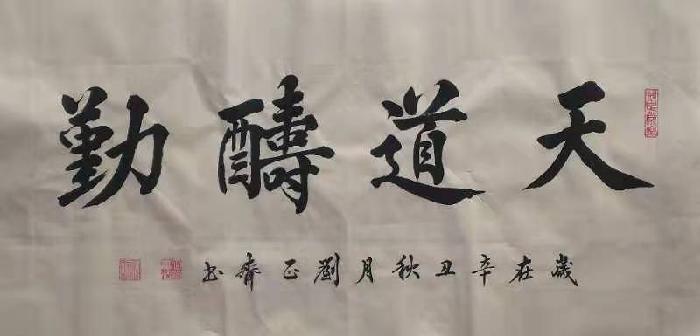 天道醻勤
歲在辛丑秋月劉正齊书